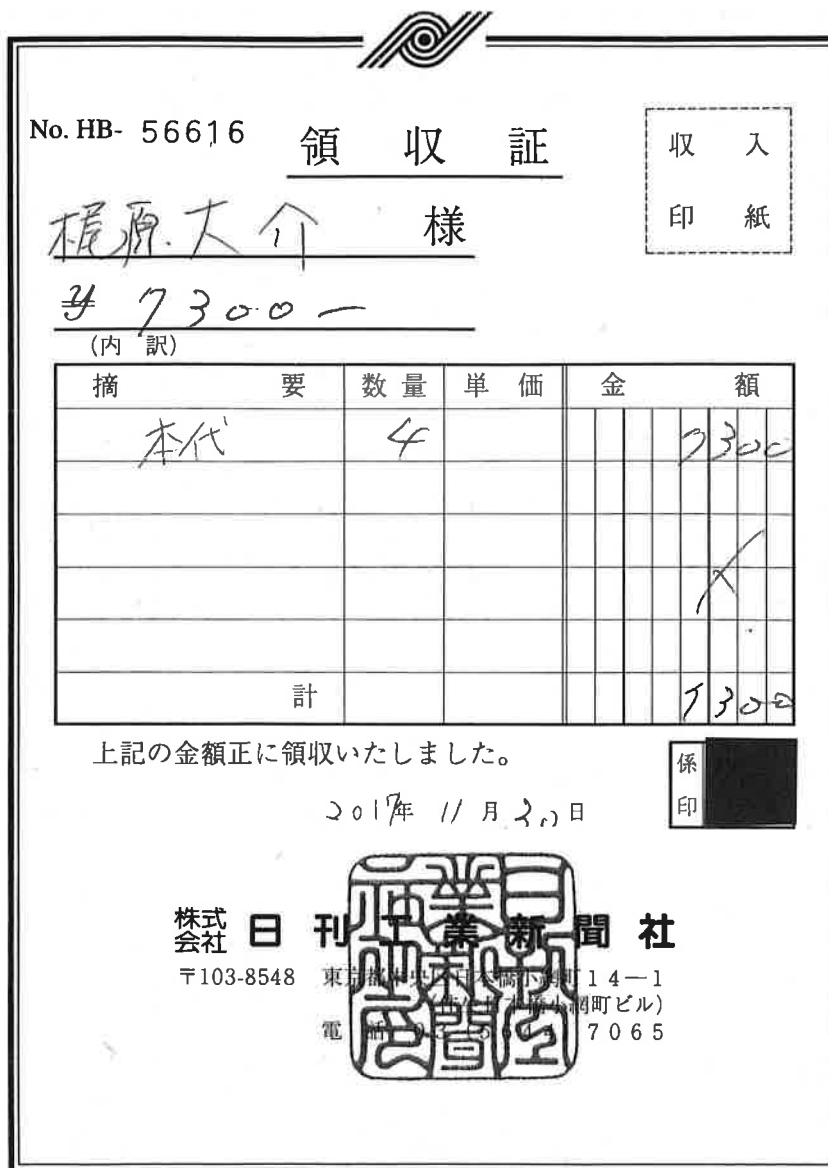 No. HB- 56616
領収証
収入
印紙
梶原大介 様
¥ 7300-
(内訳)
摘要 数量 単価 金額
本代 4 7300
計 7300
上記の金額正に領収いたしました。
係印
2017年 11月 30日
株式会社 日刊工業新聞社
〒103-8548 東京都中央区日本橋小網町14-1
日本橋小網町ビル)
電話 7065